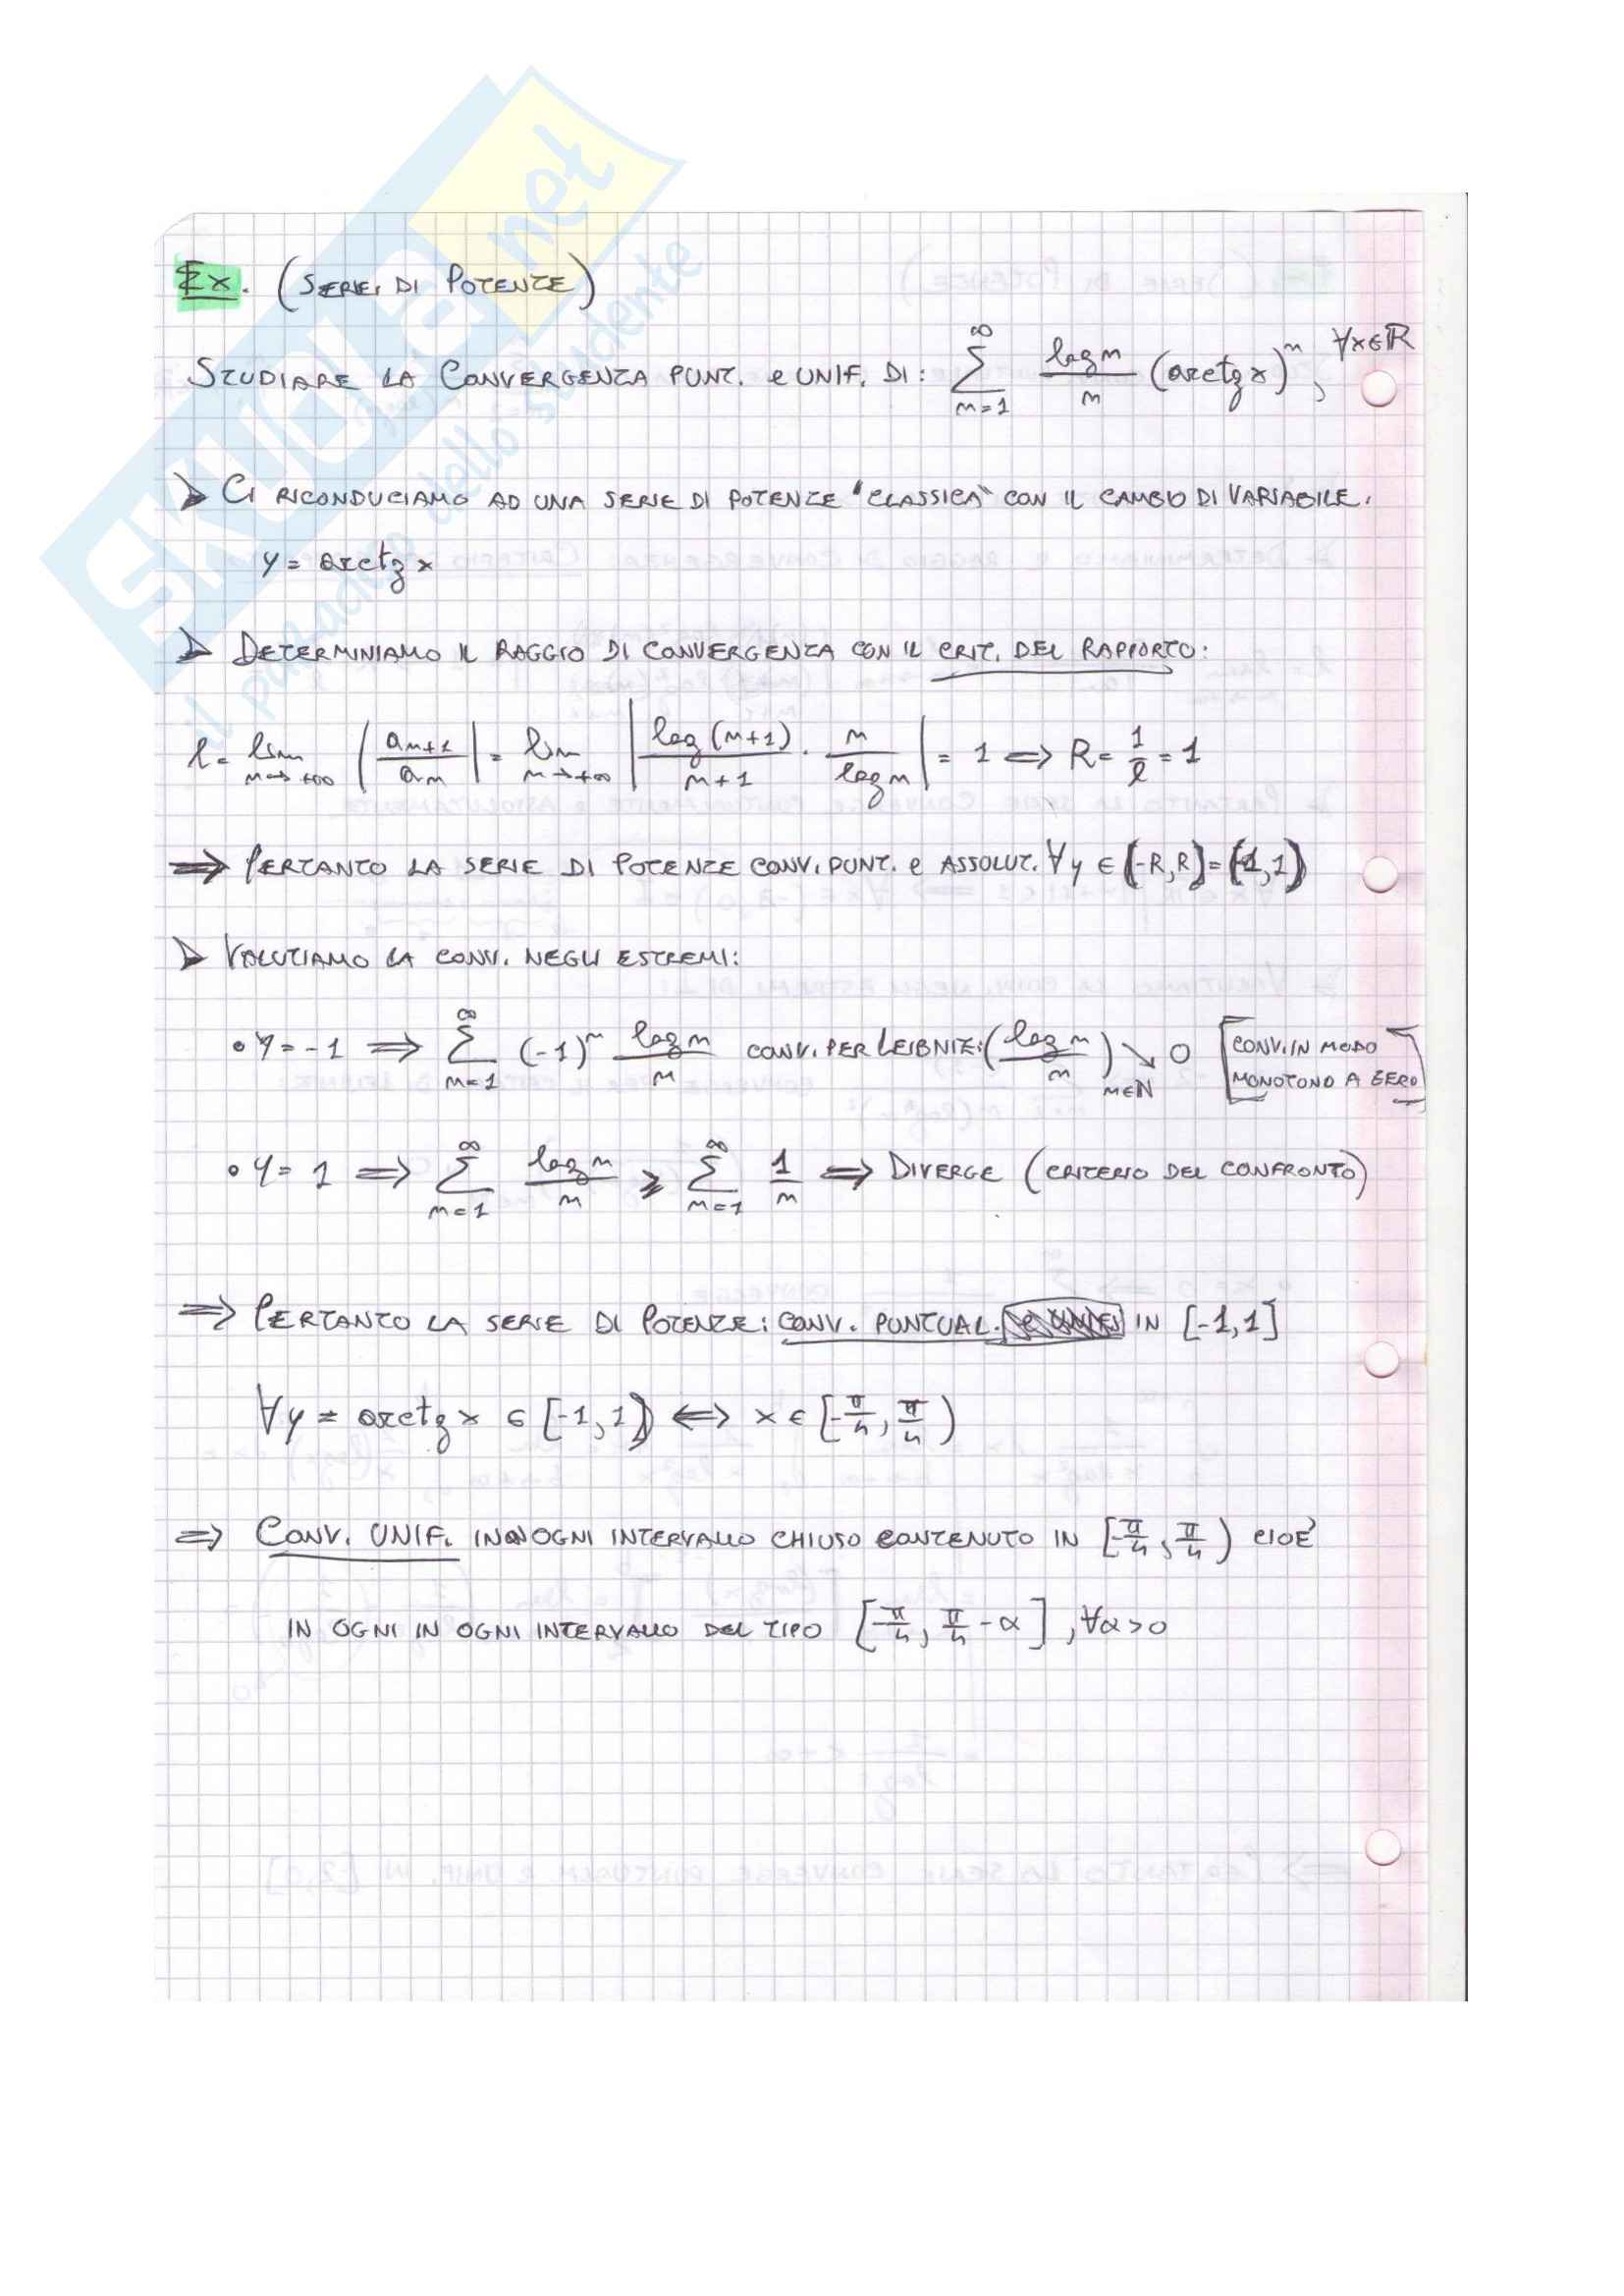 SKUOLA.net
il paradiso dello studente
Ex. (SERIE DI POTENZE)
STUDIARE LA CONVERGENZA PUNT. e UNIF. DI: ∑_{n=1}^{∞} \frac{log n}{n} (arctg x)^n, ∀x∈ℝ
➤ CI RICONDUCIAMO AD UNA SERIE DI POTENZE "CLASSICA" CON IL CAMBIO DI VARIABILE.
y = arctg x
➤ DETERMINIAMO IL RAGGIO DI CONVERGENZA CON IL CRIT. DEL RAPPORTO:
l = lim_{n→+∞} |\frac{a_{n+1}}{a_n}| = lim_{n→+∞} |\frac{log(n+1)}{n+1} · \frac{n}{log n}| = 1 ⇒ R = \frac{1}{l} = 1
⇒ PERTANTO LA SERIE DI POTENZE CONV. PUNT. e ASSOLUT. ∀y ∈ (-R, R) = (-1, 1)
➤ VALUTIAMO LA CONV. NEGLI ESTREMI:
• y = -1 ⇒ ∑_{n=1}^{∞} (-1)^n \frac{log n}{n} CONV. PER LEIBNIZ: (\frac{log n}{n})_{n∈ℕ} ↘ 0 [CONV. IN MODO MONOTONO A ZERO]
• y = 1 ⇒ ∑_{n=1}^{∞} \frac{log n}{n} ≥ ∑_{n=1}^{∞} \frac{1}{n} ⇒ DIVERGE (CRITERIO DEL CONFRONTO)
⇒ PERTANTO LA SERIE DI POTENZE: CONV. PUNTUAL. IN [-1, 1]
∀y = arctg x ∈ [-1, 1) ⟺ x ∈ [-\frac{π}{4}, \frac{π}{4})
⇒ CONV. UNIF. IN OGNI INTERVALLO CHIUSO CONTENUTO IN [-\frac{π}{4}, \frac{π}{4}) CIOÈ
IN OGNI IN OGNI INTERVALLO DEL TIPO [-\frac{π}{4}, \frac{π}{4} - α], ∀α>0